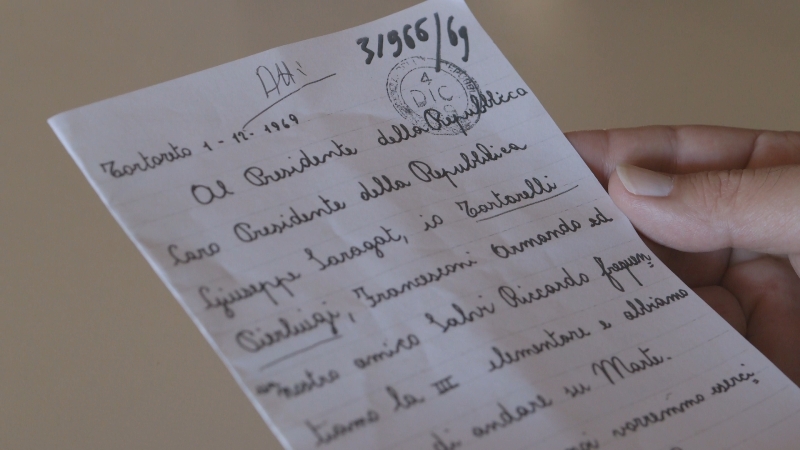 31966/69
Atti
4
DIC
Tortoreto 1-12-1969
Al Presidente della Repubblica
Caro Presidente della Repubblica
Giuseppe Saragat, io Tortorelli
Pierluigi, Franceschi Armando ed
nostro amico Salvi Riccardo frequen
tiamo la III elementare e abbiamo
di andare su Marte.
vorremmo eserci